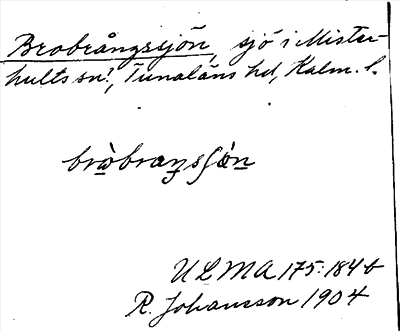 Brobrångssjön, sjö i Mister-
hults sn?, Tunaläns hd, Kalm. l.
bròbraŋsʃøn
ULMA 175:184 b
R. Johansson 1904